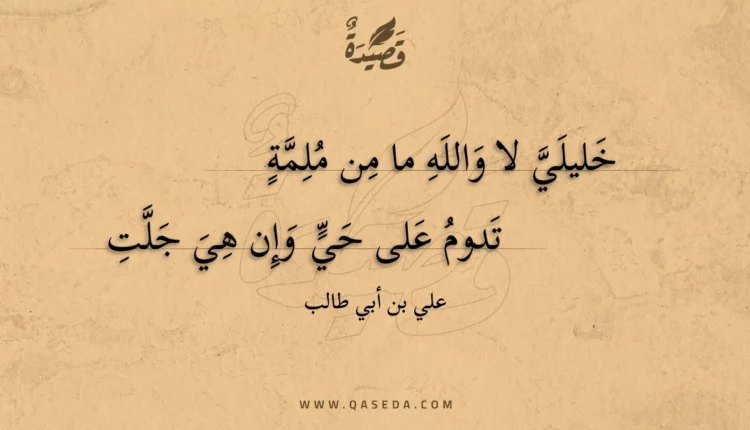 قَصِيْدَةٌ
خَليلَيَّ لا وَاللَهِ ما مِن مُلِمَّةٍ
تَدومُ عَلى حَيٍّ وَإِن هِيَ جَلَّتِ
علي بن أبي طالب
WWW.QASEDA.COM